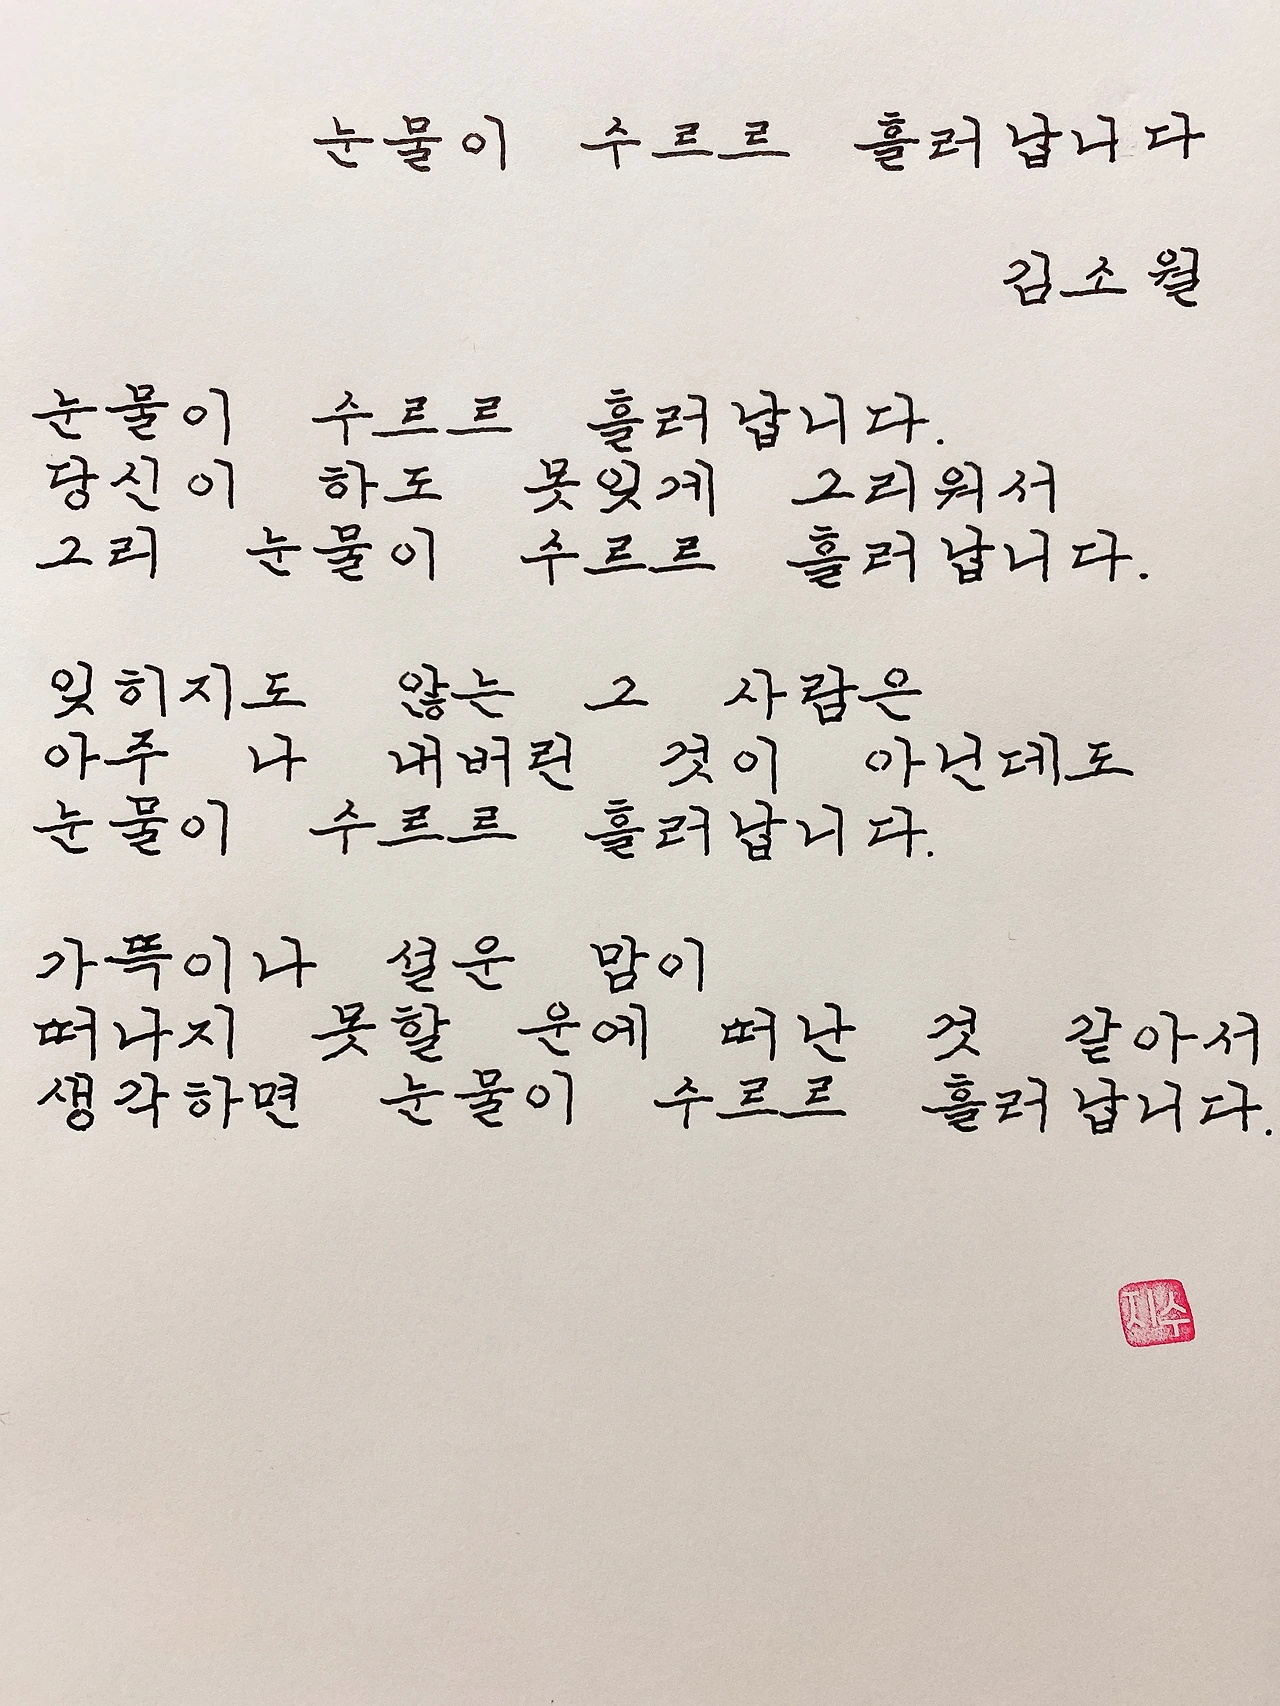 눈물이 수르르 흘러납니다
김소월
눈물이 수르르 흘러납니다.
당신이 하도 못잊게 그리워서
그리 눈물이 수르르 흘러납니다.
잊히지도 않는 그 사람은
아주 나 내버린 것이 아닌데도
눈물이 수르르 흘러납니다.
가뜩이나 설운 맘이
떠나지 못할 운에 떠난 것 같아서
생각하면 눈물이 수르르 흘러납니다.
지수